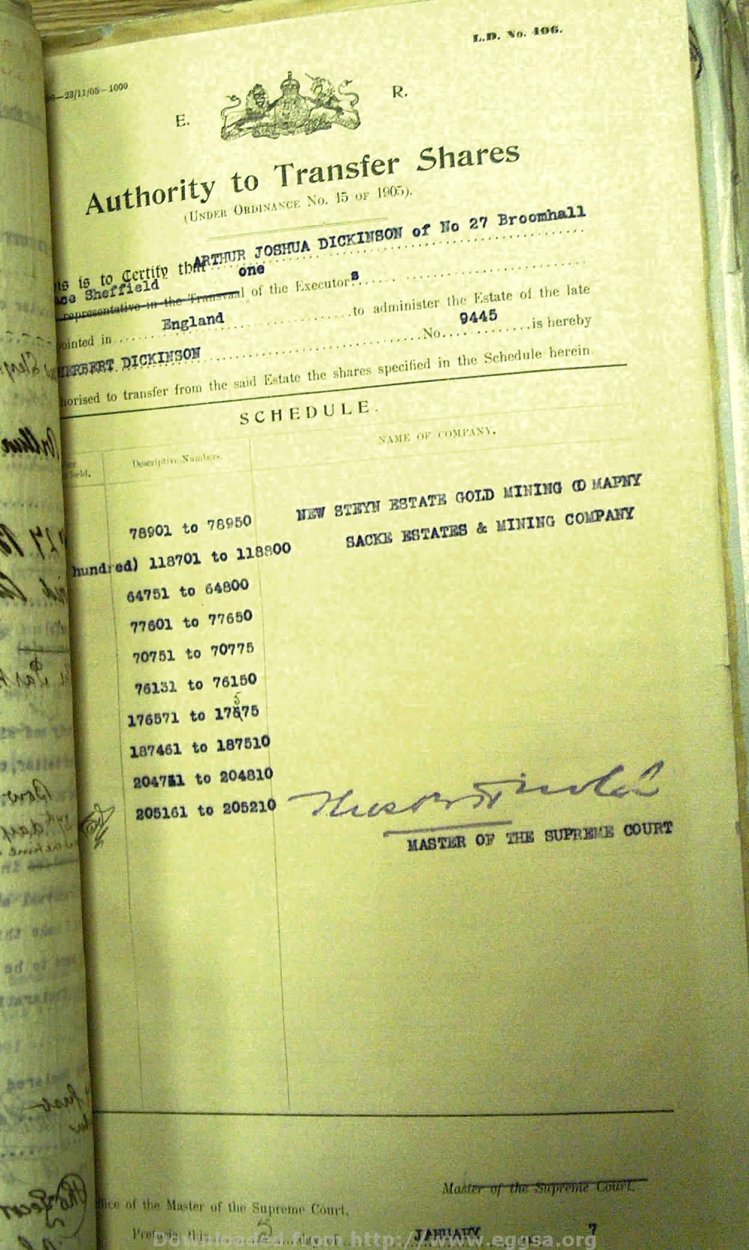 L.D. No. 406.
—23/11/05—1000
E. R.
Authority to Transfer Shares
(UNDER ORDINANCE No. 15 OF 1905).
is is to Certify that ARTHUR JOSHUA DICKINSON of No 27 Broomhall
ace Sheffield one
representative in the Transvaal of the Executors
ointed in England to administer the Estate of the late
HERBERT DICKINSON No. 9445 is hereby
horised to transfer from the said Estate the shares specified in the Schedule herein.
SCHEDULE.
held. Descriptive Numbers. NAME OF COMPANY.
78901 to 78950 NEW STEYN ESTATE GOLD MINING CO MAPNY
hundred) 118701 to 118800 SACKE ESTATES & MINING COMPANY
64751 to 64800
77601 to 77650
70751 to 70775
76131 to 76150
176571 to 17575
187461 to 187510
2047 1 to 204810
205161 to 205210
MASTER OF THE SUPREME COURT
Master of the Supreme Court.
fice of the Master of the Supreme Court,
Pretoria this 5 JANUARY 7
Downloaded from http://www.eggsa.org